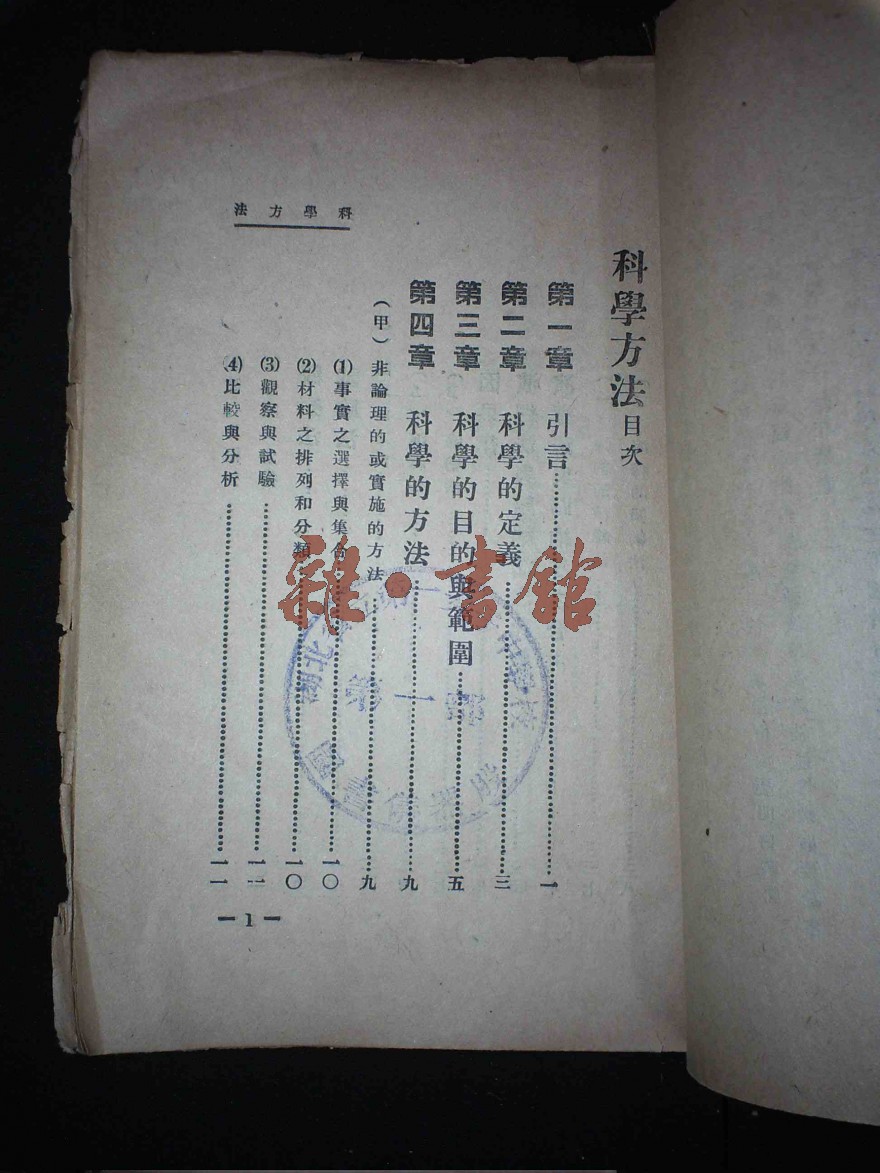 科學方法目次
第一章 引言……一
第二章 科學的定義……三
第三章 科學的目的與範圍……五
第四章 科學的方法……九
(甲)非論理的或實施的方法……九
(1)事實之選擇與集合……一〇
(2)材料之排列和分類……一〇
(3)觀察與試驗……一一
(4)比較與分析……一一
科學方法
—1—
雜·書館
第一部